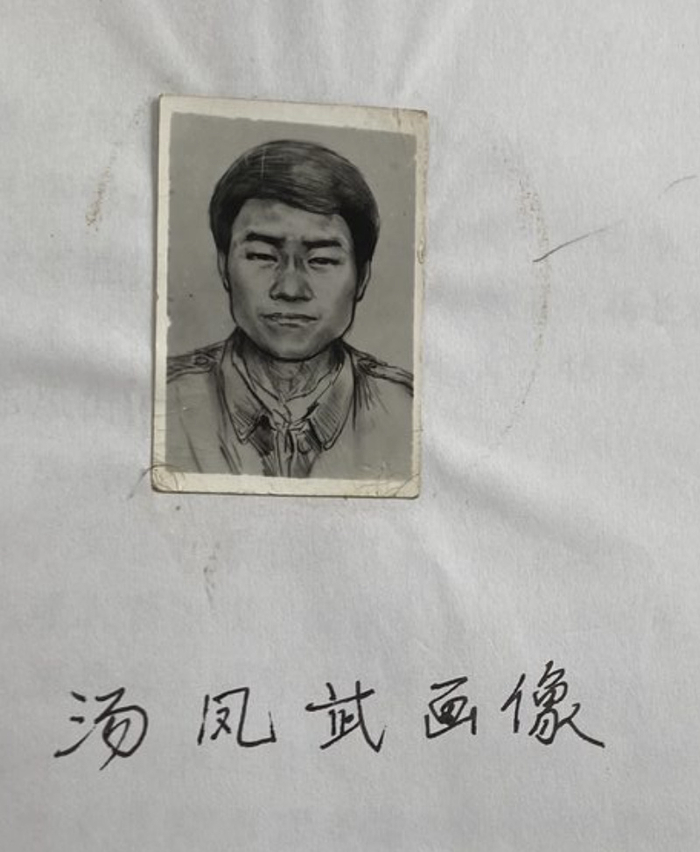 汤凤武画像